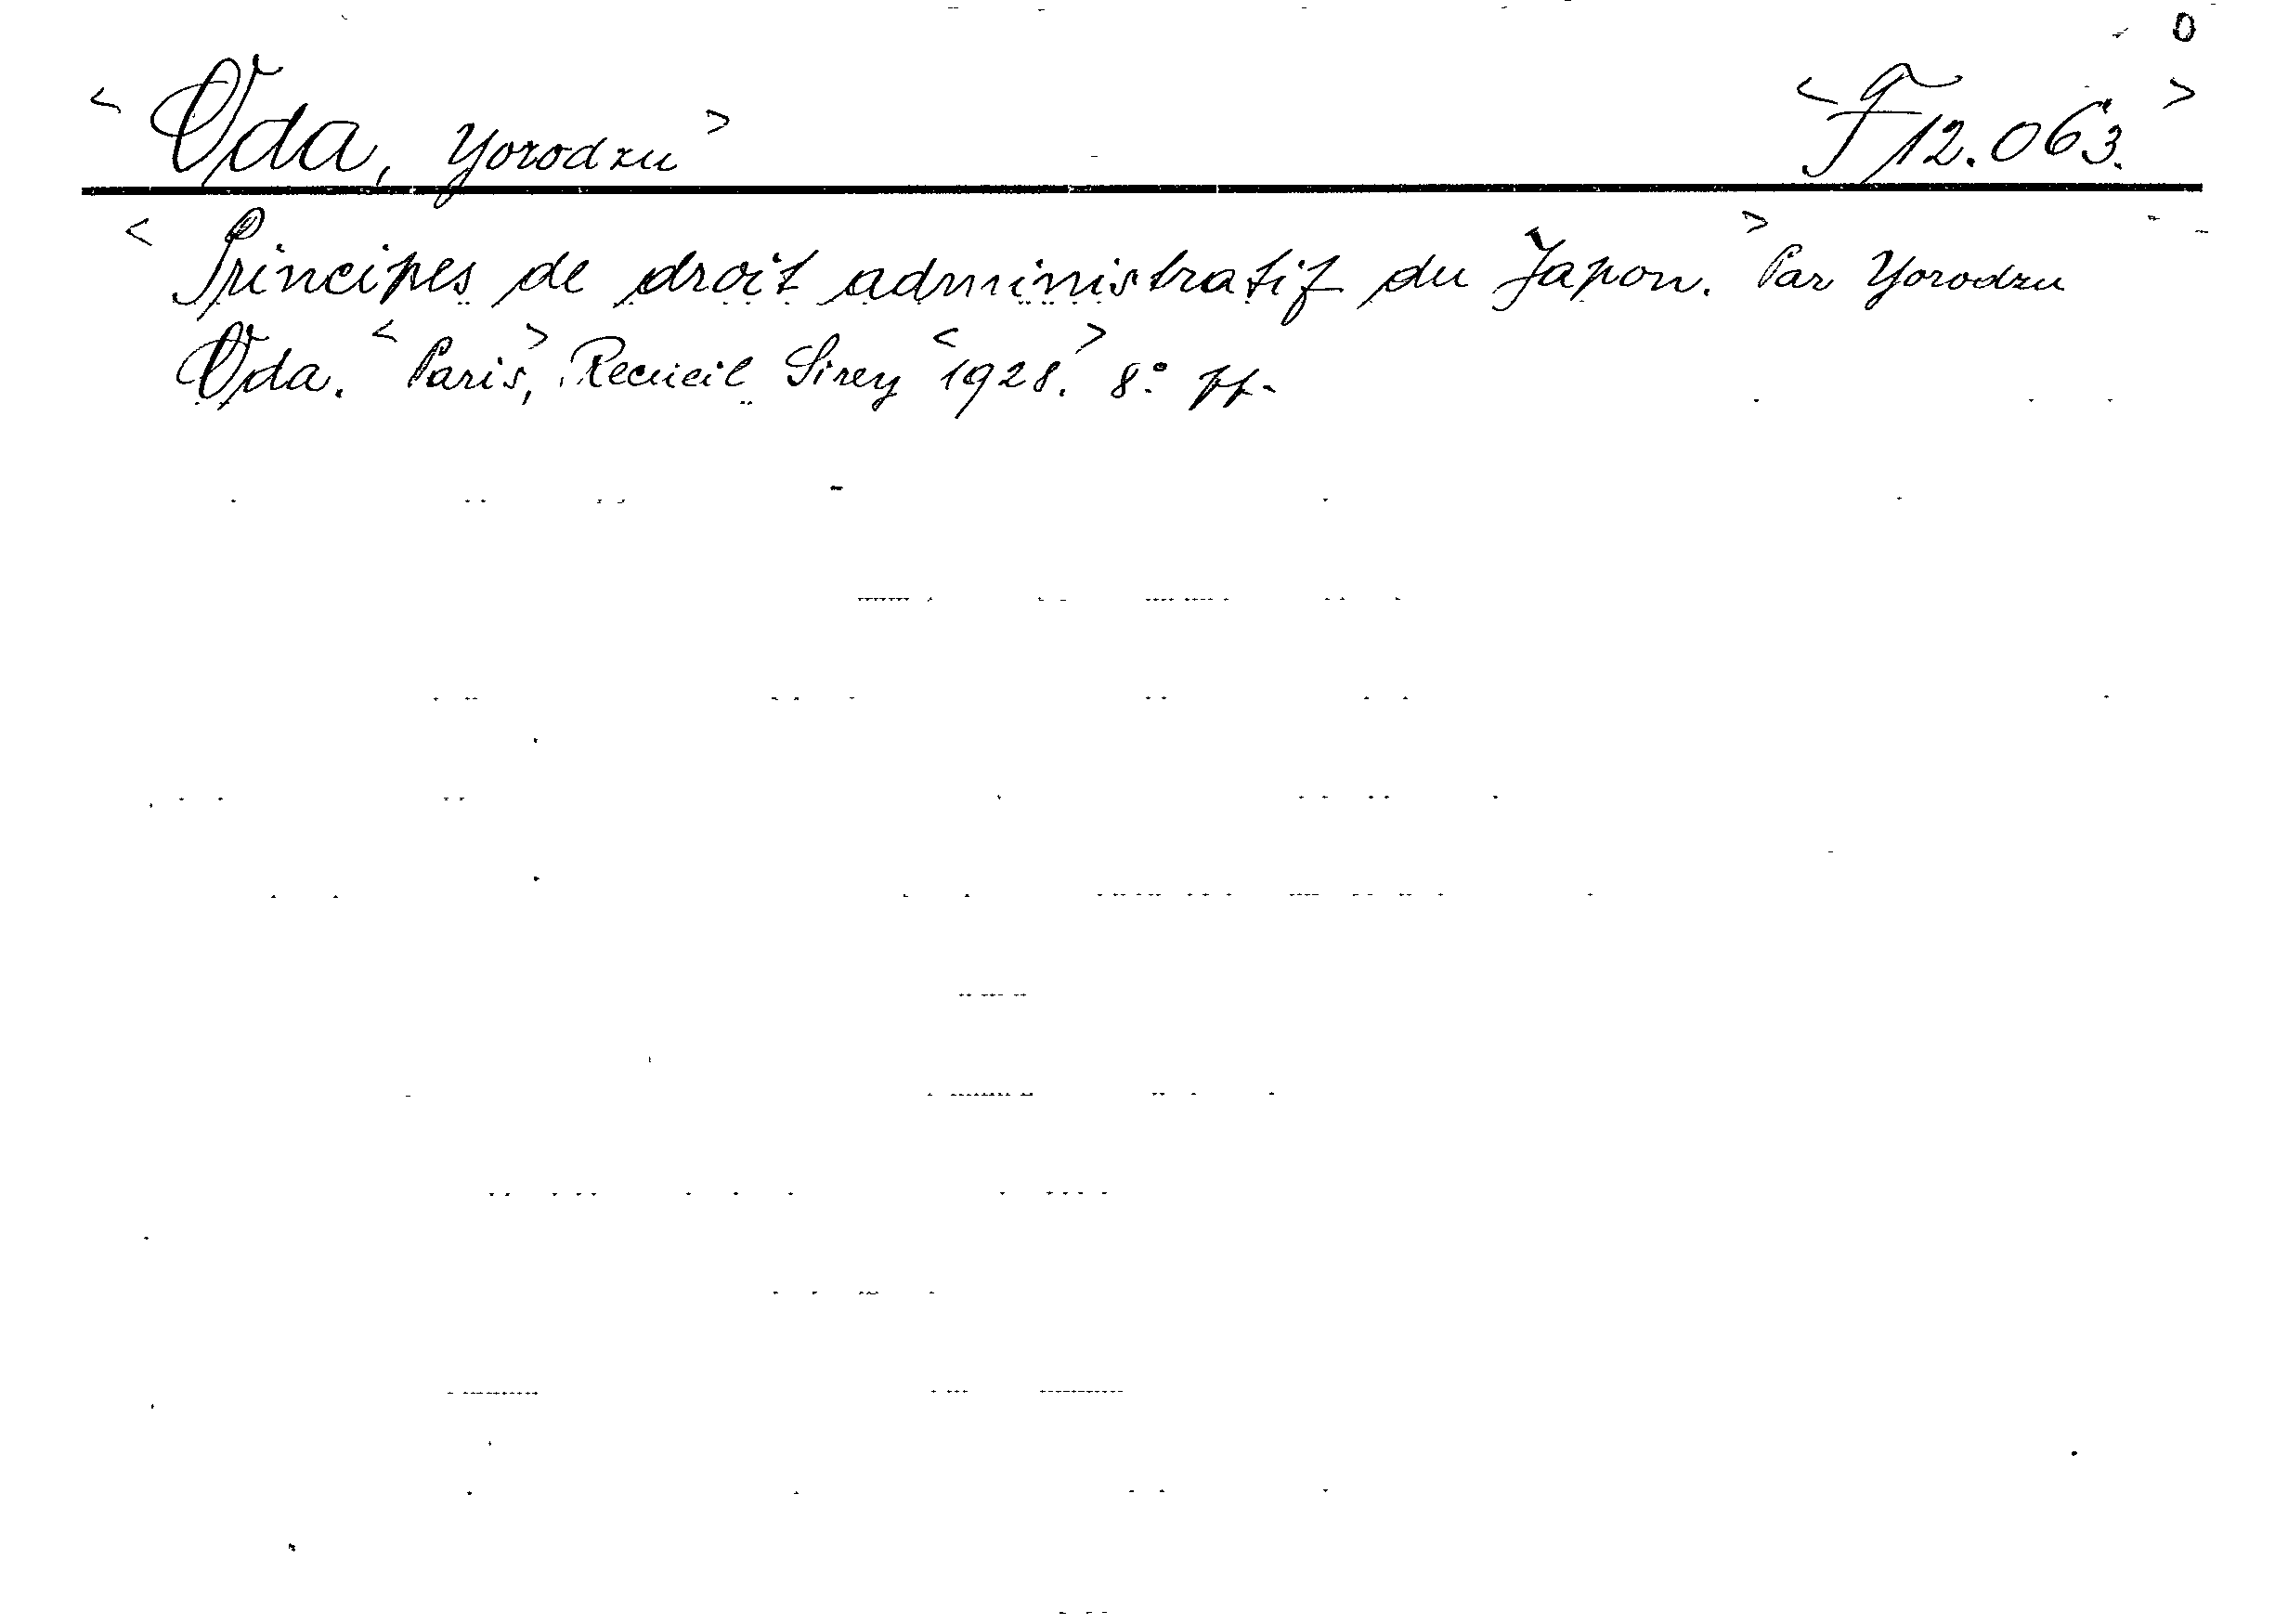 O
< Oda, Yorodzu > < F 12.063. >
< Principes de droit administratif du Japon. > Par Yorodzu
Oda. < Paris >, Recueil Sirey < 1928. > 8:° pp-